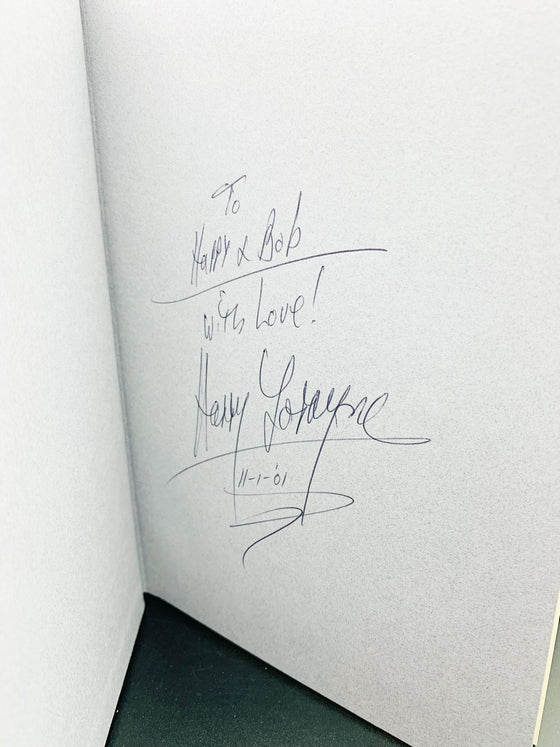 To
Happy & Bob
with Love!
Harry Lorayne
11-1-'01